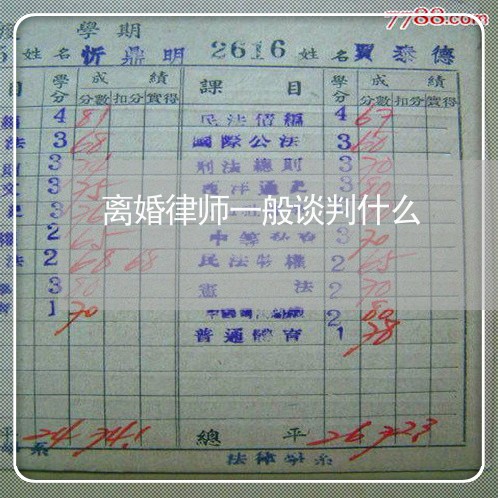 7788.com
學期
姓名 忻鼎明 2616 姓名 賈泰德
目 學分 成績 課目 學分 成績
分數 扣分 實得 分數 扣分 實得
4 81 民法債編 4 67
法 3 68 國際公法 3 60
3 刑法總則 3 70
文 3 75 西洋通史 3 80
離婚律师一般谈判什么
權 2 65 3 70
法 2 68 68 民法物權 2 65
3 80 憲法 2 70
1 70 2 80
普通體育 1 78
平 24 74.1 總平 26 72.3
系 法律學系